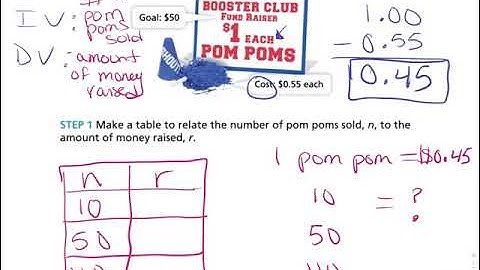 # of
IV: pom
poms
sold
DV: amount
of money
raised
Goal: $50
BOOSTER CLUB
FUND RAISER
$1 EACH
POM POMS
Cost: $0.55 each
1.00
- 0.55
0.45
STEP 1 Make a table to relate the number of pom poms sold, n, to the
amount of money raised, r.
n r
10
50
1 pom pom = $0.45
10 = ?
50